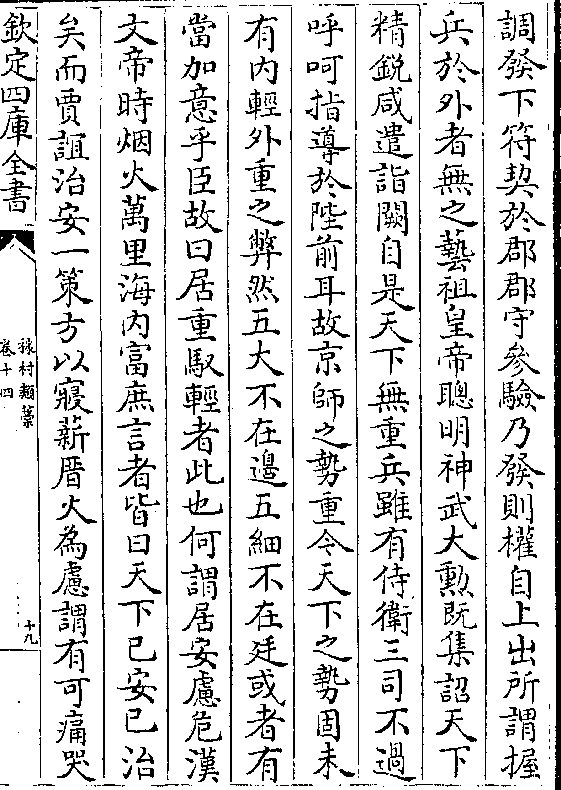 調發下符契於郡郡守參驗乃發則權自上出所謂握
兵於外者無之藝祖皇帝聰明神武大勲既集詔天下
精鋭咸遣詣闕自是天下無重兵雖有侍衛三司不過
呼呵指導於陛前耳故京師之勢重令天下之勢固未
有内輕外重之弊然五大不在邊五細不在廷或者有
當加意乎臣故曰居重馭輕者此也何謂居安慮危漢
文帝時烟火萬里海内富庶言者皆曰天下已安已治
矣而賈誼治安一策方以寢薪厝火為慮謂有可痛哭
欽定四庫全書
祿村類藁
卷十四
十九